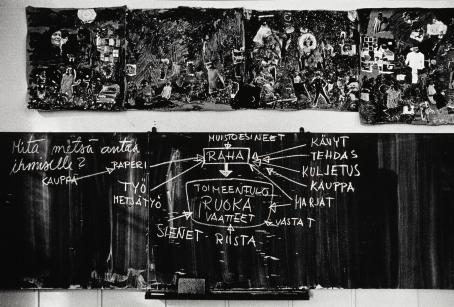 Mitä metsä antaa
ihmiselle?
KAUPPA
PAPERI
TYÖ
METSÄTYÖ
MUISTOESINEET
RAHA
TOIMEENTULO
RUOKA
VAATTEET
SIENET - RIISTA
KÄVYT
TEHDAS
KULJETUS
KAUPPA
MARJAT
VASTAT